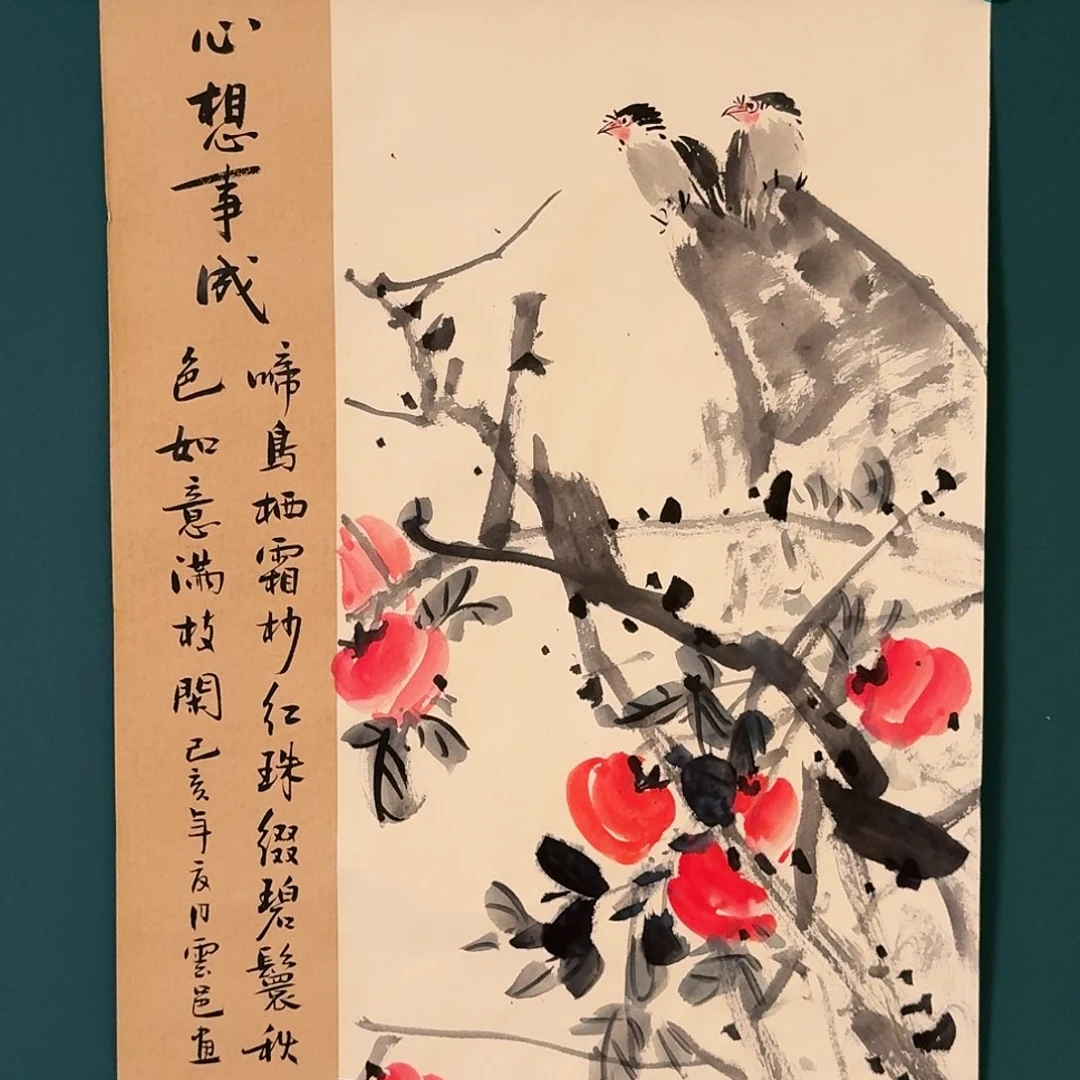 心想事成
啼鳥栖霜杪红珠缀碧鬟秋
色如意满枝閑己亥年夏月雲邑画